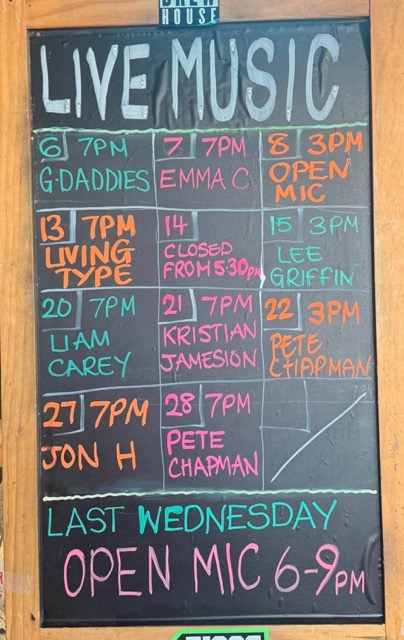 BREW
HOUSE
LIVE MUSIC
6 7PM
G-DADDIES
7 7PM
EMMA C
8 3PM
OPEN
MIC
13 7PM
LIVING
TYPE
14
CLOSED
FROM 5:30PM
15 3PM
LEE
GRIFFIN
20 7PM
LIAM
CAREY
21 7PM
KRISTIAN
JAMESION
22 3PM
PETE
CHAPMAN
27 7PM
JON H
28 7PM
PETE
CHAPMAN
LAST WEDNESDAY
OPEN MIC 6-9PM